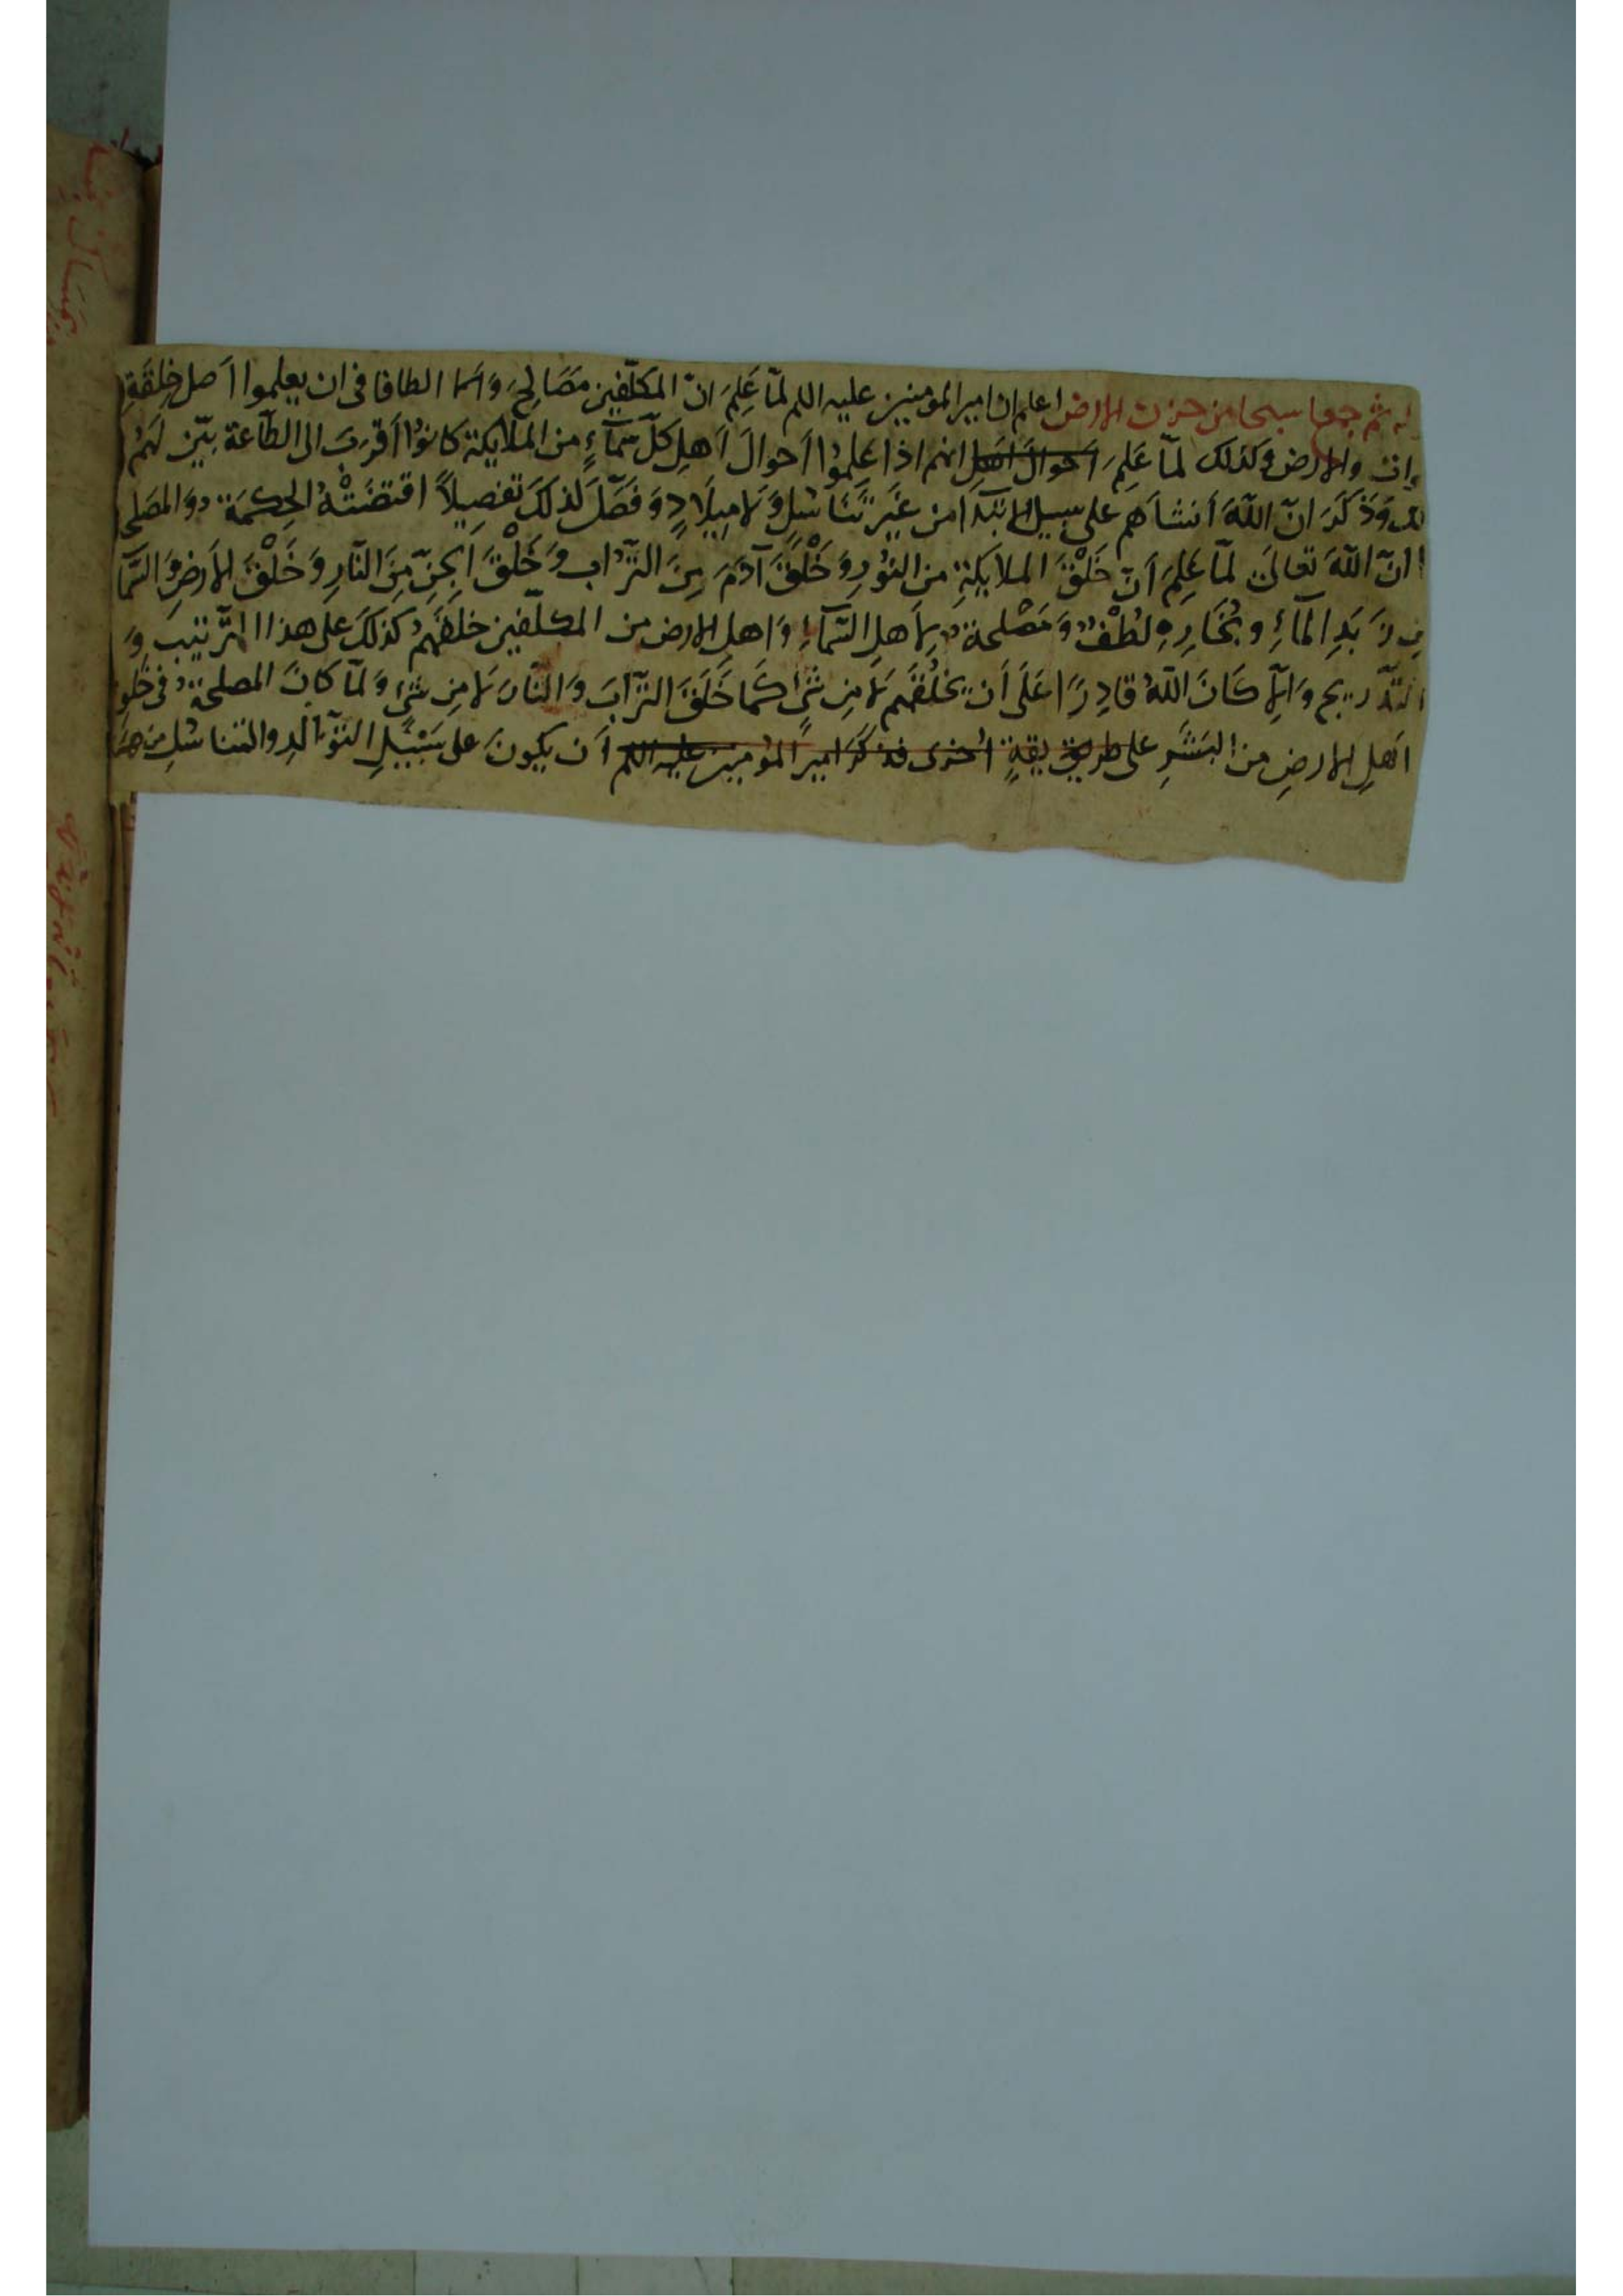 ثم جمع سبحا من حزن الارض اعلم ان امير المومنين عليه اللم لمّا عَلِمَ انّ المكلّفين مَصَالِحَ وَ الطافا فى ان يعلموا اَصل خِلقَةِ
والارض وكذلك لمّا عَلِمَ احوالَ اهل انهم اذا عَلِمُوا اَحوالَ اَهلِ كلّ سَمَآءٍ من الملايكة كانوُا اَقربَ الى الطّاعة بيّن لَهمُ
وَذَكَرَ انّ اللّهَ اَنشاَهم على سبيل الابتدَا من غَيرِ تَنَاسُلٍ وَلَا مِيلَادٍ وَفَصّلَ لذلكَ تفصِيلاً اقتضَتْهُ الحِكمَة وَالمصَلح
انّ اللّهَ تعالىَ لمّا عَلِمَ اَنّ خَلْقَ الملايكةِ من النوُرِ وَخَلْقَ آدَمَ مِنَ التُّراب وَخَلْقَ الجِنِّ مِنَ النّارِ وَخَلْقَ الاَرضِ وَالسّمَا
مِن زَبَدِ المَآءِ وبُخَارِهِ لُطْفٌ وَمَصْلحة لِاَهلِ السّمَآءِ وَاهل الارض من المكلّفين خلقَهمُ كذلكَ على هذا الترّتيبِ وَ
التّدريج وَاِلّا كَانَ اللّهُ قادِرًا عَلَى اَن يَخلُقَهم لَا مِن شَىءٍ كَمَا خَلَقَ التّرابَ وَالنّارَ لَا مِن شَىءٍ وَلمّا كانَ المصلحة فى خلو
اَهلِ الارضِ من البَشَرِ على طريق يقةٍ اُخرى فذكرَ اميرُ المؤمنين عليه اللم اَن يكونَ على سَبِيلِ التوَالدِ والتناسُلِ من